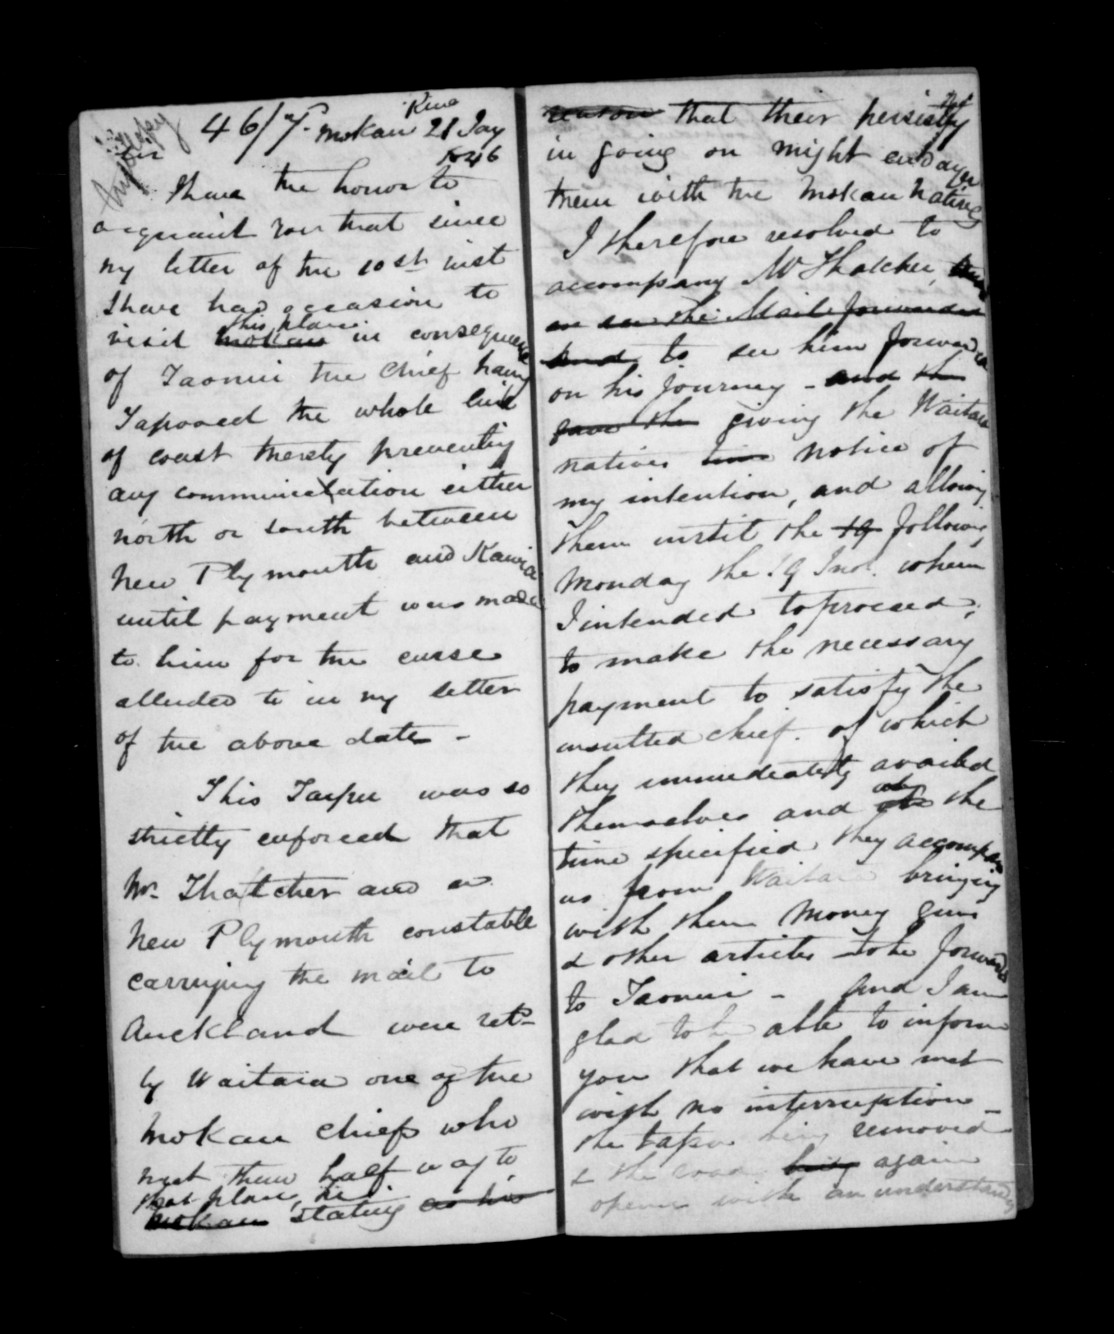 46/7. Mokau River 21 Jay
1846
Sir
I have the honor to
acquaint you that since
my letter of the 10st inst
I have had occasion to
visit Mokau this place in consequence
of Taonui the Chief having
Tapooed the whole line
of coast thereby preventing
any communication either
north or south between
New Plymouth and Kawia
until payment was made
to him for the curse
alluded to in my letter
of the above date -
This Tapu was so
strictly enforced that
Mr. Thatcher and a
New Plymouth constable
carrying the mail to
Auckland were retd
by Waitaia one of the
Mokau chiefs who
met them half way to
Mokau that place, he stating as his
reason that their persisting
in going on might endanger
them with the Mokau Natives
I therefore resolved to
accompany Mr Thatcher
on the Mail forwarded
and to see him forwarded
on his journey - and the
gave the giving the Waitara
natives notice of
my intention, and allowing
them until the 19 following
Monday the 19 Inst. when
I intended to proceed,
to make the necessary
payment to satisfy the
insulted chief. of which
they immediately availed
themselves and at the
time specified they accompd
us from Waitara bringing
with them money guns
& other articles to be forwarded
to Taonui - and I am
glad to be able to inform
you that we have met
with no interruption -
the tapu being removed
& the road being again
opened with an understanding